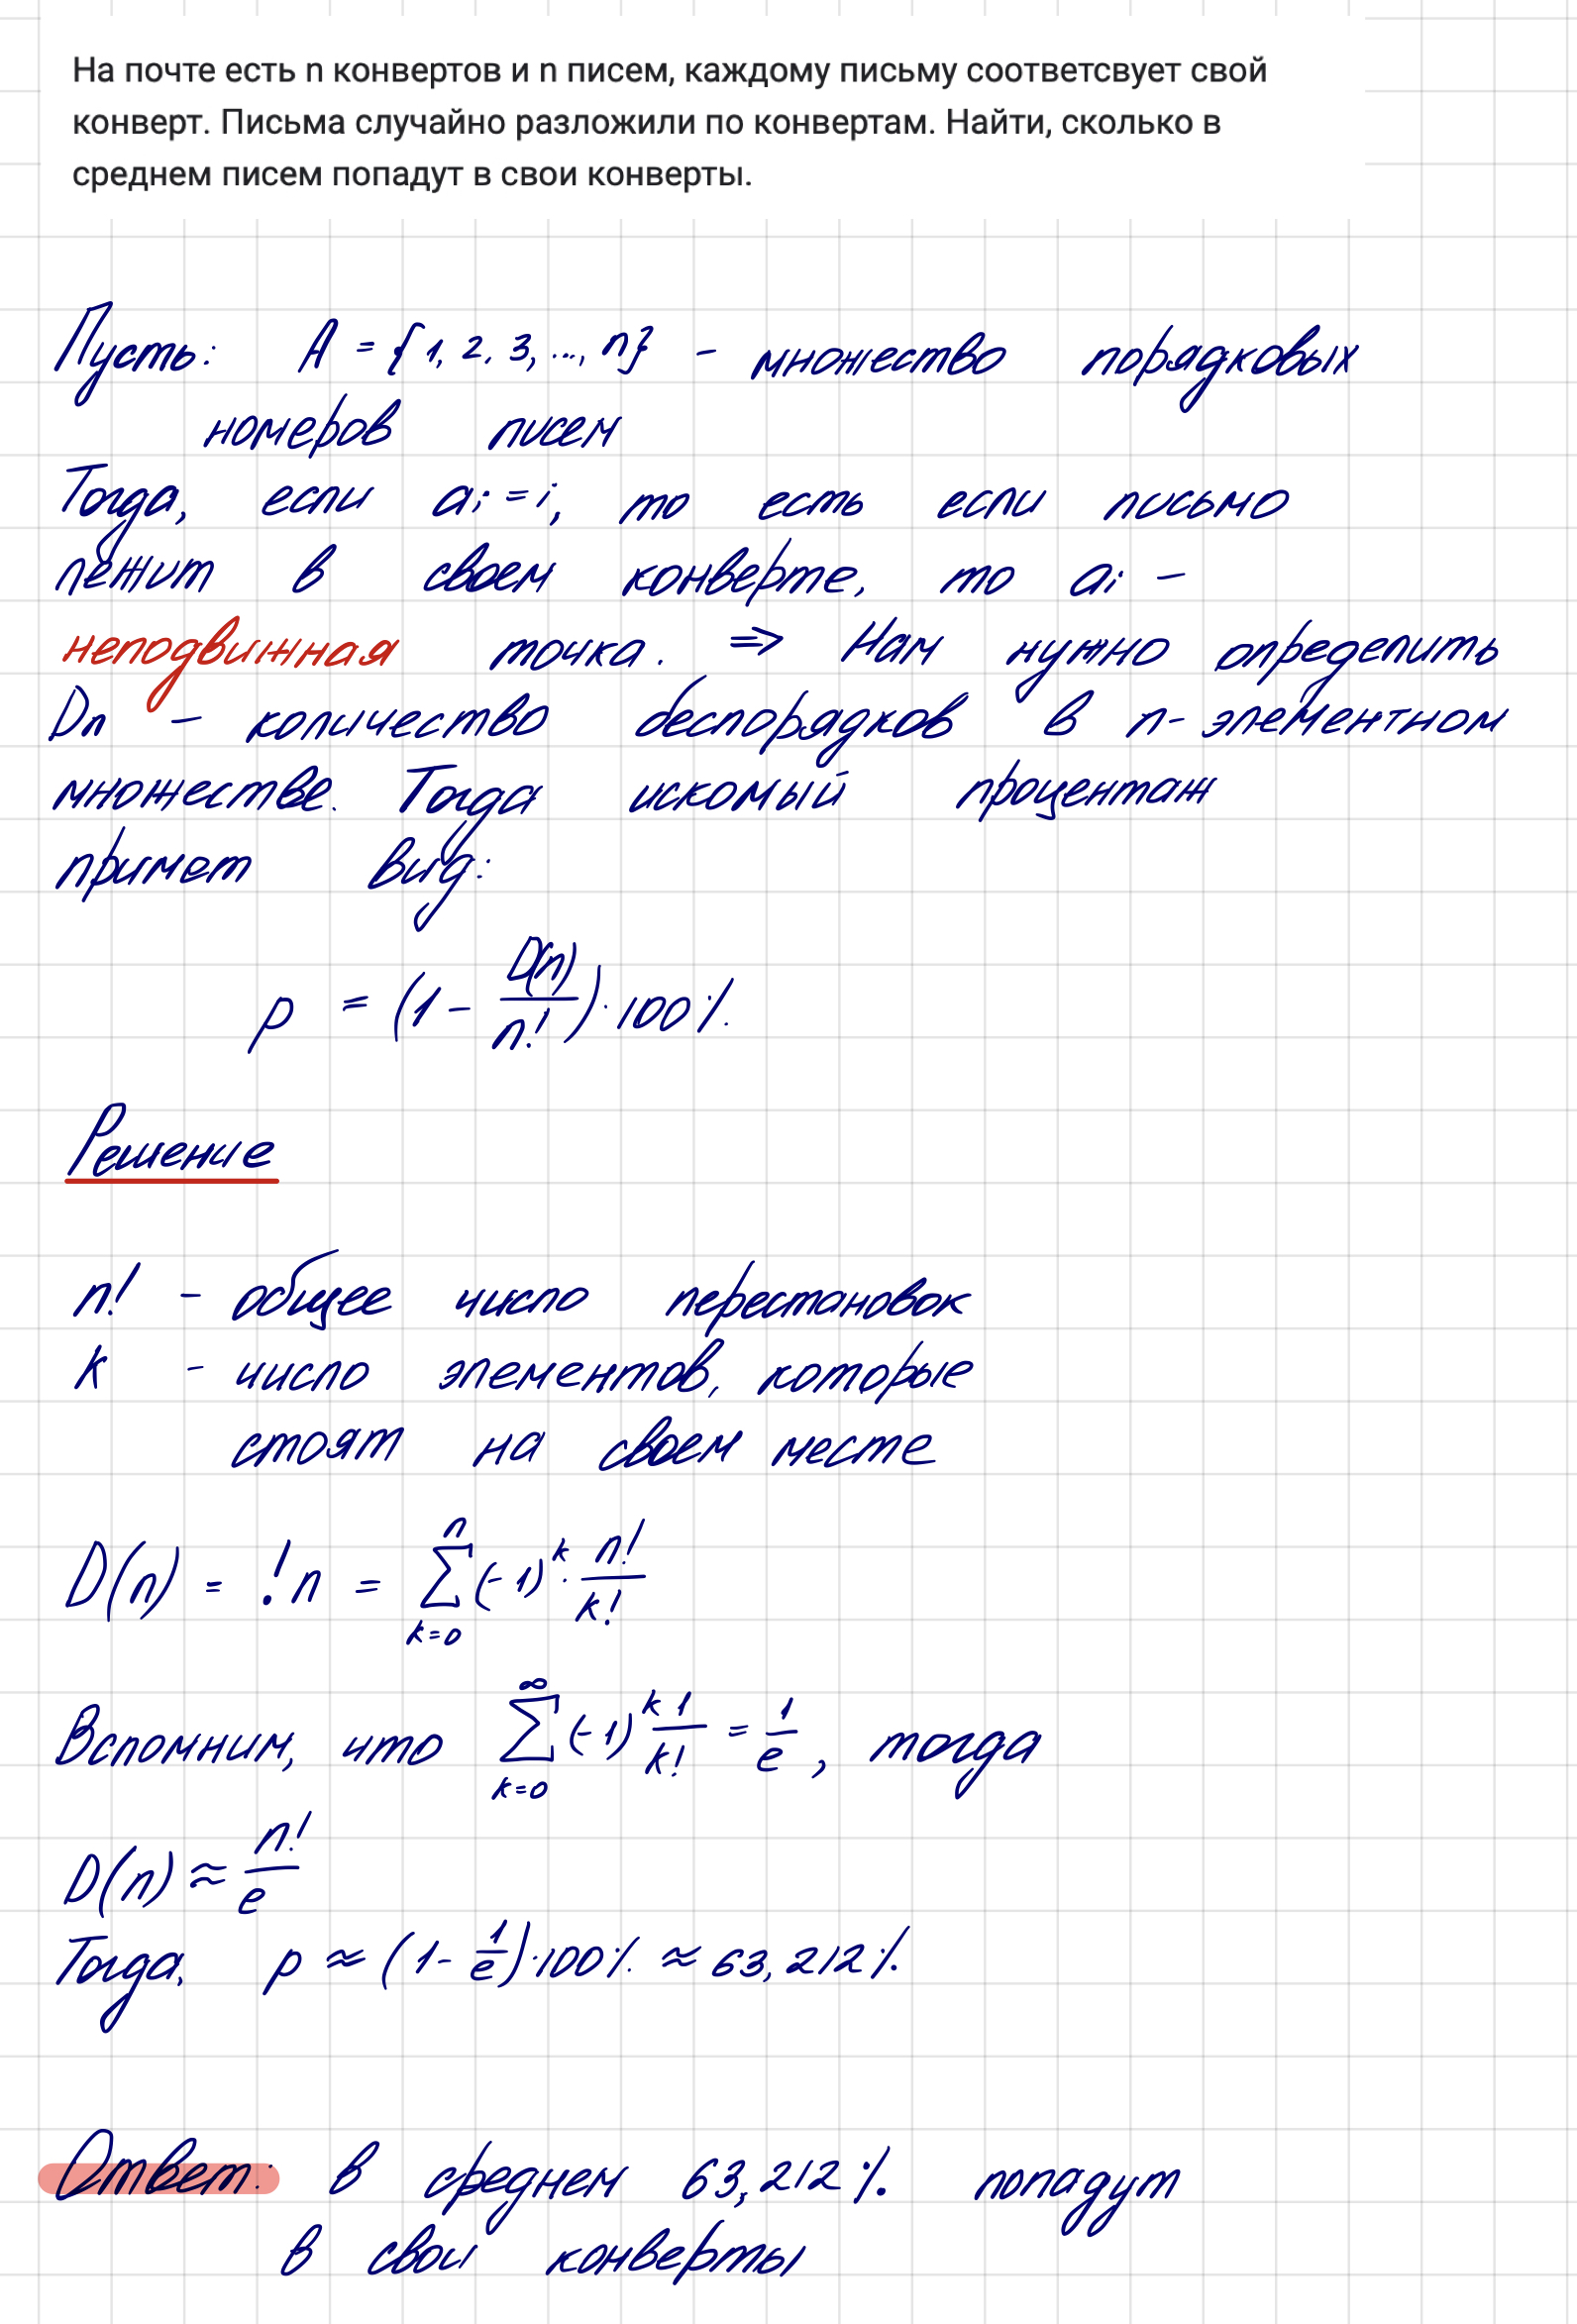 На почте есть n конвертов и n писем, каждому письму соответсвует свой
конверт. Письма случайно разложили по конвертам. Найти, сколько в
среднем писем попадут в свои конверты.
Пусть: A = {1, 2, 3, ..., n} - множество порядковых
номеров писем
Тогда, если aᵢ = i, то есть если письмо
лежит в своем конверте, то aᵢ -
неподвижная точка. => Нам нужно определить
Dn - количество беспорядков в n-элементном
множестве. Тогда искомый процентаж
примет вид:
p = (1 - D(n)/n!) · 100%
Решение
n! - общее число перестановок
k - число элементов, которые
стоят на своем месте
D(n) = !n = ∑_{k=0}^{n} (-1)^k · n!/k!
Вспомним, что ∑_{k=0}^{∞} (-1)^k 1/k! = 1/e, тогда
D(n) ≈ n!/e
Тогда, p ≈ (1 - 1/e) · 100% ≈ 63,212%
Ответ: В среднем 63,212% попадут
в свои конверты